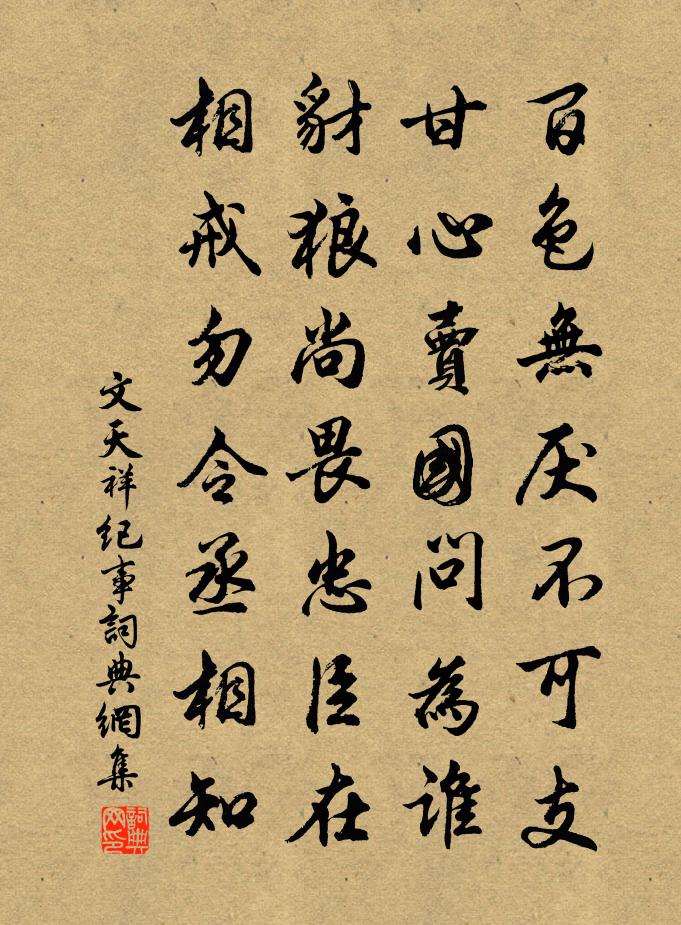 百色無厌不可支
甘心賣國問為誰
豺狼尚畏忠臣在
相戒勿令丞相知
文天祥紀事詞典網集
詞典網印